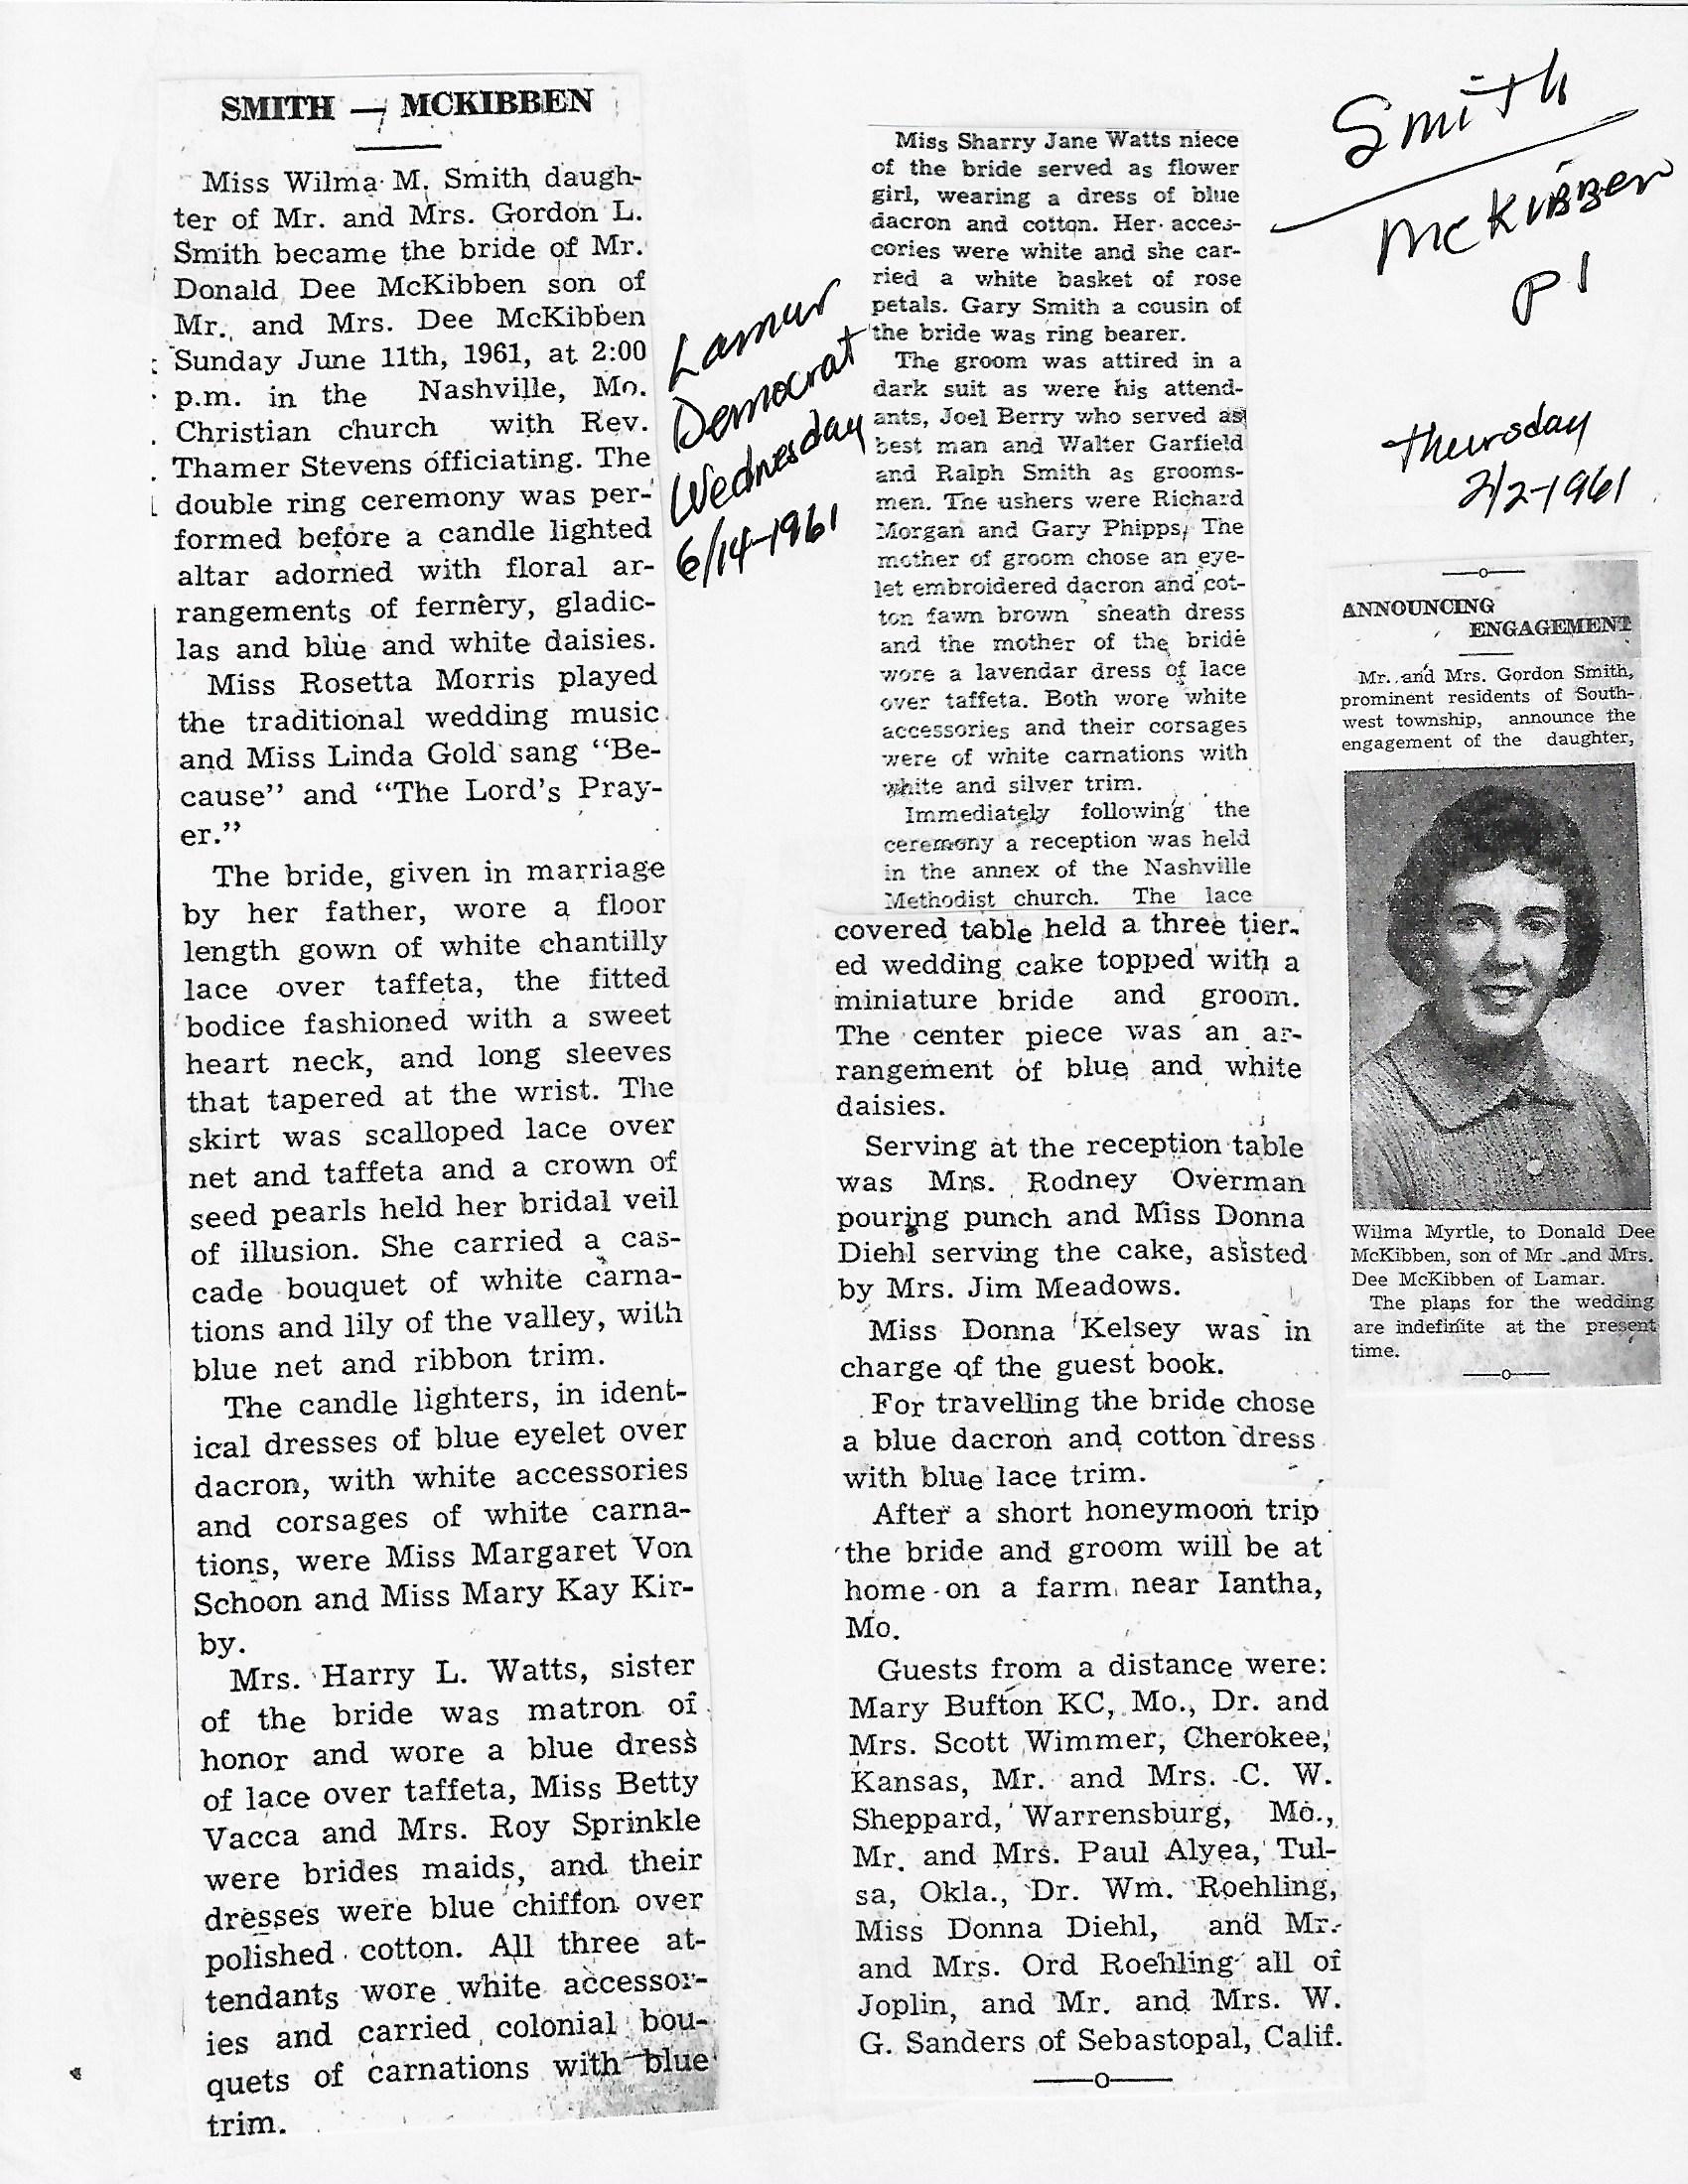 SMITH — MCKIBBEN
Miss Wilma M. Smith daugh-
ter of Mr. and Mrs. Gordon L.
Smith became the bride of Mr.
Donald Dee McKibben son of
Mr. and Mrs. Dee McKibben
Sunday June 11th, 1961, at 2:00
p.m. in the Nashville, Mo.
Christian church with Rev.
Thamer Stevens officiating. The
double ring ceremony was per-
formed before a candle lighted
altar adorned with floral ar-
rangements of fernery, gladic-
las and blue and white daisies.
Miss Rosetta Morris played
the traditional wedding music
and Miss Linda Gold sang "Be-
cause" and "The Lord's Pray-
er."
The bride, given in marriage
by her father, wore a floor
length gown of white chantilly
lace over taffeta, the fitted
bodice fashioned with a sweet
heart neck, and long sleeves
that tapered at the wrist. The
skirt was scalloped lace over
net and taffeta and a crown of
seed pearls held her bridal veil
of illusion. She carried a cas-
cade bouquet of white carna-
tions and lily of the valley, with
blue net and ribbon trim.
The candle lighters, in ident-
ical dresses of blue eyelet over
dacron, with white accessories
and corsages of white carna-
tions, were Miss Margaret Von
Schoon and Miss Mary Kay Kir-
by.
Mrs. Harry L. Watts, sister
of the bride was matron of
honor and wore a blue dress
of lace over taffeta, Miss Betty
Vacca and Mrs. Roy Sprinkle
were brides maids, and their
dresses were blue chiffon over
polished cotton. All three at-
tendants wore white accessor-
ies and carried colonial bou-
quets of carnations with blue
trim.
Lamur
Democrat
Wednesday
6/14-1961
Miss Sharry Jane Watts niece
of the bride served as flower
girl, wearing a dress of blue
dacron and cotton. Her acces-
cories were white and she car-
ried a white basket of rose
petals. Gary Smith a cousin of
the bride was ring bearer.
The groom was attired in a
dark suit as were his attend-
ants, Joel Berry who served as
best man and Walter Garfield
and Ralph Smith as grooms-
men. The ushers were Richard
Morgan and Gary Phipps, The
mother of groom chose an eye-
let embroidered dacron and cot-
ton fawn brown sheath dress
and the mother of the bride
wore a lavendar dress of lace
over taffeta. Both wore white
accessories and their corsages
were of white carnations with
white and silver trim.
Immediately following the
ceremony a reception was held
in the annex of the Nashville
Methodist church. The lace
covered table held a three tier-
ed wedding cake topped with a
miniature bride and groom.
The center piece was an ar-
rangement of blue and white
daisies.
Serving at the reception table
was Mrs. Rodney Overman
pouring punch and Miss Donna
Diehl serving the cake, asisted
by Mrs. Jim Meadows.
Miss Donna Kelsey was in
charge of the guest book.
For travelling the bride chose
a blue dacron and cotton dress
with blue lace trim.
After a short honeymoon trip
the bride and groom will be at
home on a farm near Iantha,
Mo.
Guests from a distance were:
Mary Bufton KC, Mo., Dr. and
Mrs. Scott Wimmer, Cherokee,
Kansas, Mr. and Mrs. C. W.
Sheppard, Warrensburg, Mo.,
Mr. and Mrs. Paul Alyea, Tul-
sa, Okla., Dr. Wm. Roehling,
Miss Donna Diehl, and Mr.
and Mrs. Ord Roehling all of
Joplin, and Mr. and Mrs. W.
G. Sanders of Sebastopal, Calif.
Smith
McKibben
P1
Thursday
2/2-1961
ANNOUNCING
ENGAGEMENT
Mr. and Mrs. Gordon Smith,
prominent residents of South-
west township, announce the
engagement of the daughter,
Wilma Myrtle, to Donald Dee
McKibben, son of Mr .and Mrs.
Dee McKibben of Lamar.
The plans for the wedding
are indefinite at the present
time.